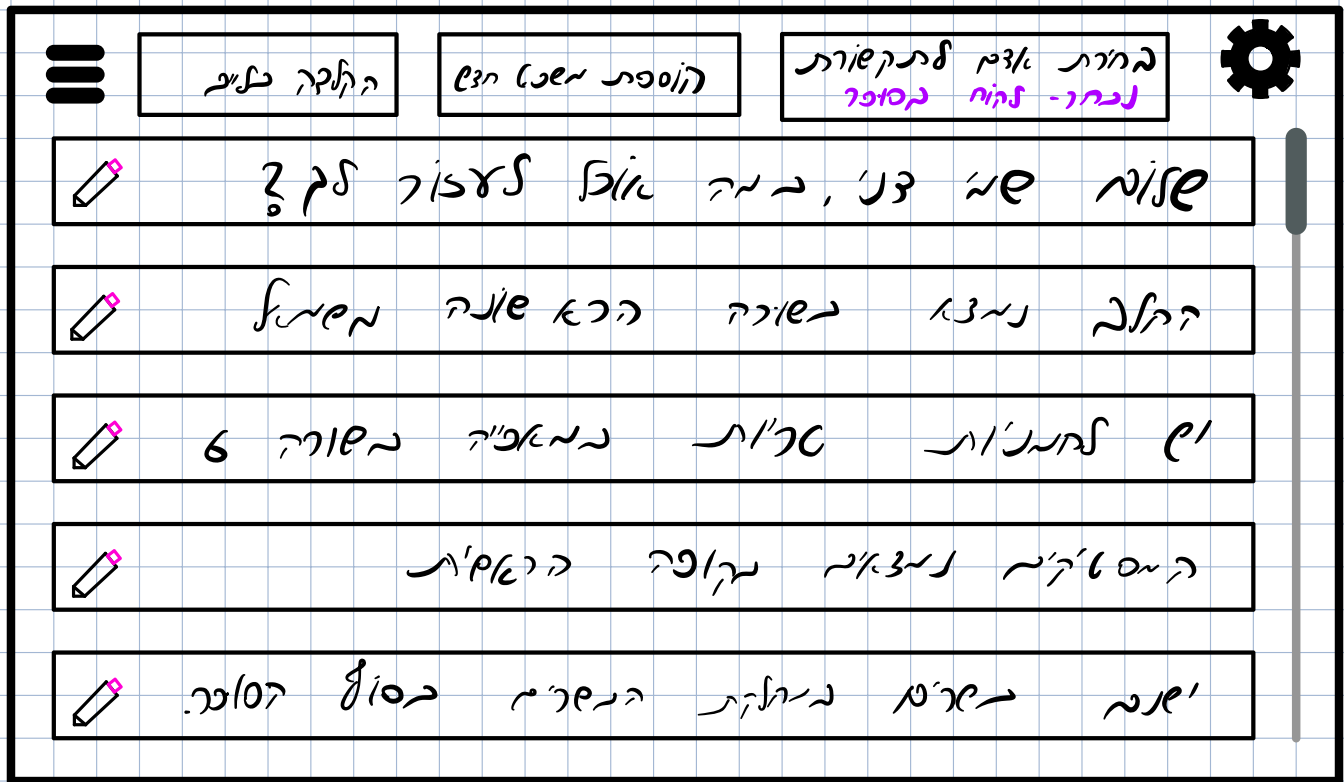 בחירת אדם לתקשורת
נבחר- לקוח בסופר
הוספת משפט חדש
הקלדה בלייב
שלום שמי דני, במה אוכל לעזור לך?
החלב נמצא בשורה הראשונה משמאל
יש לחמניות טריות במאפייה בשורה 6
המסטיקים נמצאים בקופה הראשית
ישנם בשרים במחלקת הבשרים בסוף הסופר.